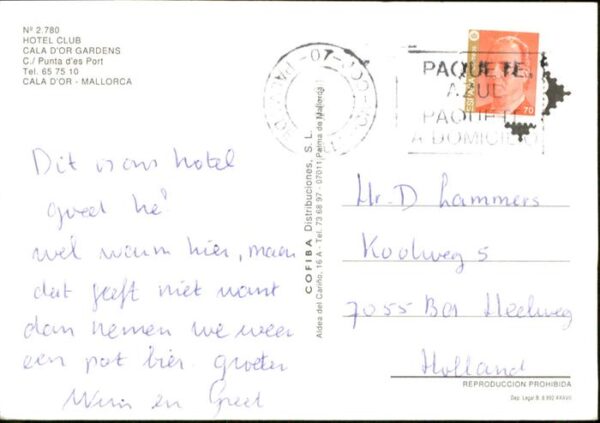 Nº 2.780
HOTEL CLUB
CALA D'OR GARDENS
C./ Punta d'es Port
Tel. 65 75 10
CALA D'OR - MALLORCA
PAQUETE
AZUL
PAQUETE
A DOMICILIO
70
Dit is ons hotel
goed hè!
wel warm hier, maar
dat geeft niet want
dan nemen we weer
een pot bier. groeten
Wim en Greet
COFIBA Distribuciones, S.L.
Aldea del Cariño, 16 A - Tel. 73 68 97 - 07011 Palma de Mallorca
Hr. D Lammers
Koolweg 5
7055 Heelweg
Holland
REPRODUCCION PROHIBIDA
Dep. Legal B. 8.992